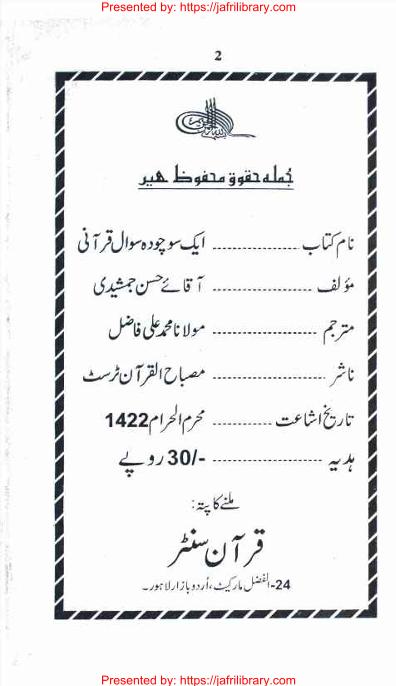 Presented by: https://jafrilibrary.com
2
جملہ حقوق محفوظ ھیں
نام کتاب ---------------- ایک سو چودہ سوال قرآنی
مؤلف ------------------ آقائے حسن جمشیدی
مترجم ------------------ مولانا محمد علی فاضل
ناشر ------------------- مصباح القرآن ٹرسٹ
تاریخ اشاعت ----------- محرم الحرام 1422
ہدیہ -------------------- 30/- روپے
ملنے کا پتہ:
قرآن سنٹر
24-الفضل مارکیٹ، اُردو بازار لاہور۔
Presented by: https://jafrilibrary.com